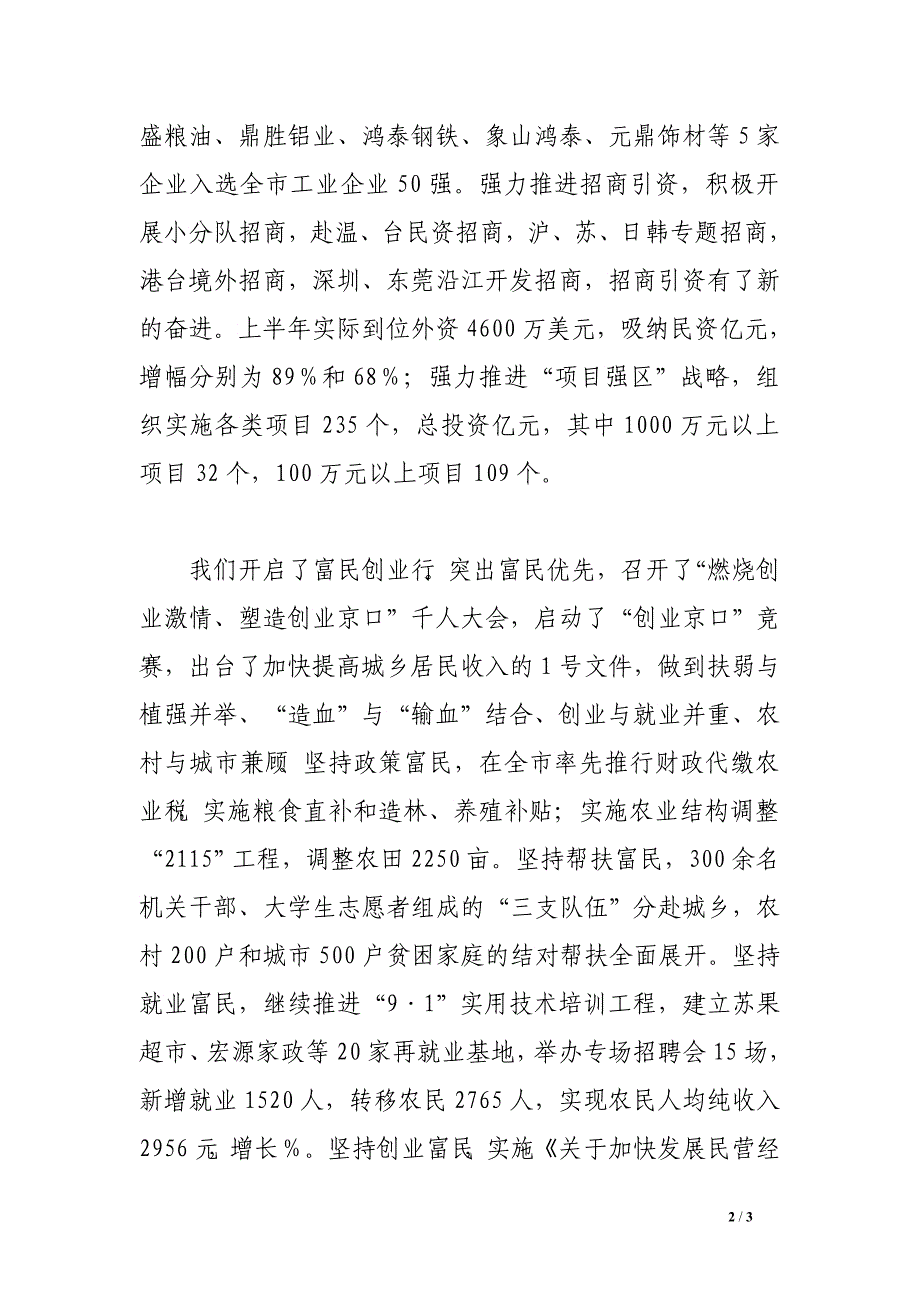 盛粮油、鼎胜铝业、鸿泰钢铁、象山鸿泰、元鼎饰材等 5 家
企业入选全市工业企业 50 强。强力推进招商引资，积极开
展小分队招商，赴温、台民资招商，沪、苏、日韩专题招商，
港台境外招商，深圳、东莞沿江开发招商，招商引资有了新
的奋进。上半年实际到位外资 4600 万美元，吸纳民资亿元，
增幅分别为 89％和 68％；强力推进“项目强区”战略，组
织实施各类项目 235 个，总投资亿元，其中 1000 万元以上
项目 32 个，100 万元以上项目 109 个。
我们开启了富民创业行，突出富民优先，召开了“燃烧创
业激情、塑造创业京口”千人大会，启动了“创业京口”竞
赛，出台了加快提高城乡居民收入的 1 号文件，做到扶弱与
植强并举、“造血”与“输血”结合、创业与就业并重、农
村与城市兼顾。坚持政策富民，在全市率先推行财政代缴农
业税，实施粮食直补和造林、养殖补贴；实施农业结构调整
“2115”工程，调整农田 2250 亩。坚持帮扶富民，300 余名
机关干部、大学生志愿者组成的“三支队伍”分赴城乡，农
村 200 户和城市 500 户贫困家庭的结对帮扶全面展开。坚持
就业富民，继续推进“9·1”实用技术培训工程，建立苏果
超市、宏源家政等 20 家再就业基地，举办专场招聘会 15 场，
新增就业 1520 人，转移农民 2765 人，实现农民人均纯收入
2956 元，增长％。坚持创业富民，实施《关于加快发展民营经
2 / 3